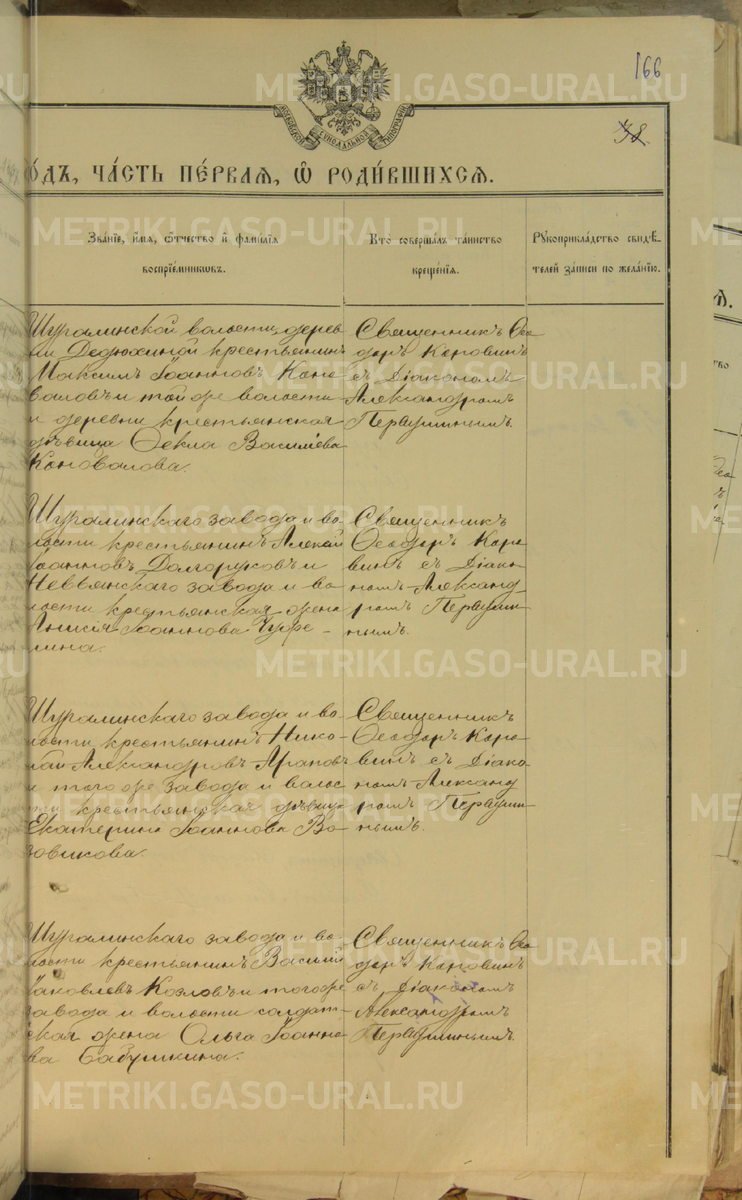 166
МОСКОВСКОЙ СѴНОДАЛЬНОЙ ТИПОГРАФІИ
ОДЪ, ЧАСТЬ ПЕРВАЯ, Ѡ РОДИВШИХСЯ.
Званіе, имя, ѻтчество и фамилія
воспріемниковъ.
Кто совершалъ таинство
крещенія.
Рукоприкладство свидѣ-
телей записи по желанію.
Шуралинской волости, дерев-
ни Дедюхиной крестьянинъ
Максимъ Іоанновъ Коно-
валовъ и той же волости
и деревни крестьянская
дѣвица Ѳекла Васильева
Коновалова.
Священникъ Ѳео-
доръ Коровинъ
съ Діакономъ
Александромъ
Первушинымъ.
Шуралинскаго завода и во-
лости крестьянинъ Алексѣй
Іоанновъ Долгоруковъ и
Невьянскаго завода и во-
лости крестьянская жена
Анисія Іоаннова
Священникъ
Ѳеодоръ Коро-
винъ съ Діако-
номъ Александ-
ромъ Первуши-
нымъ.
Шуралинскаго завода и во-
лости крестьянинъ Нико-
лай Александровъ Араповъ
и того же завода и волос-
ти крестьянская дѣвица
Екатерина Іоаннова Во-
зовикова.
Священникъ
Ѳеодоръ Коро-
винъ съ Діако-
номъ Александ
ромъ Первуши-
нымъ.
Шуралинскаго завода и во-
лости крестьянинъ Василій
Іаковлевъ Козловъ и того же
завода и волости солдат-
ская жена Ольга Іоанно-
ва Бабушкина.
Священникъ Ѳео-
доръ Коровинъ
съ Діакономъ
Александромъ
Первушинымъ.
METRIKI.GASO-URAL.RU